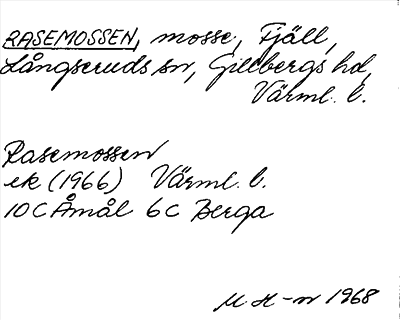 RASEMOSSEN, mosse, Fjäll,
Långseruds sn, Gillbergs hd,
Värml. l.
Rasemossen
ek (1966) Värml. l.
10 C Åmål 6 c Berga
M H-n 1968